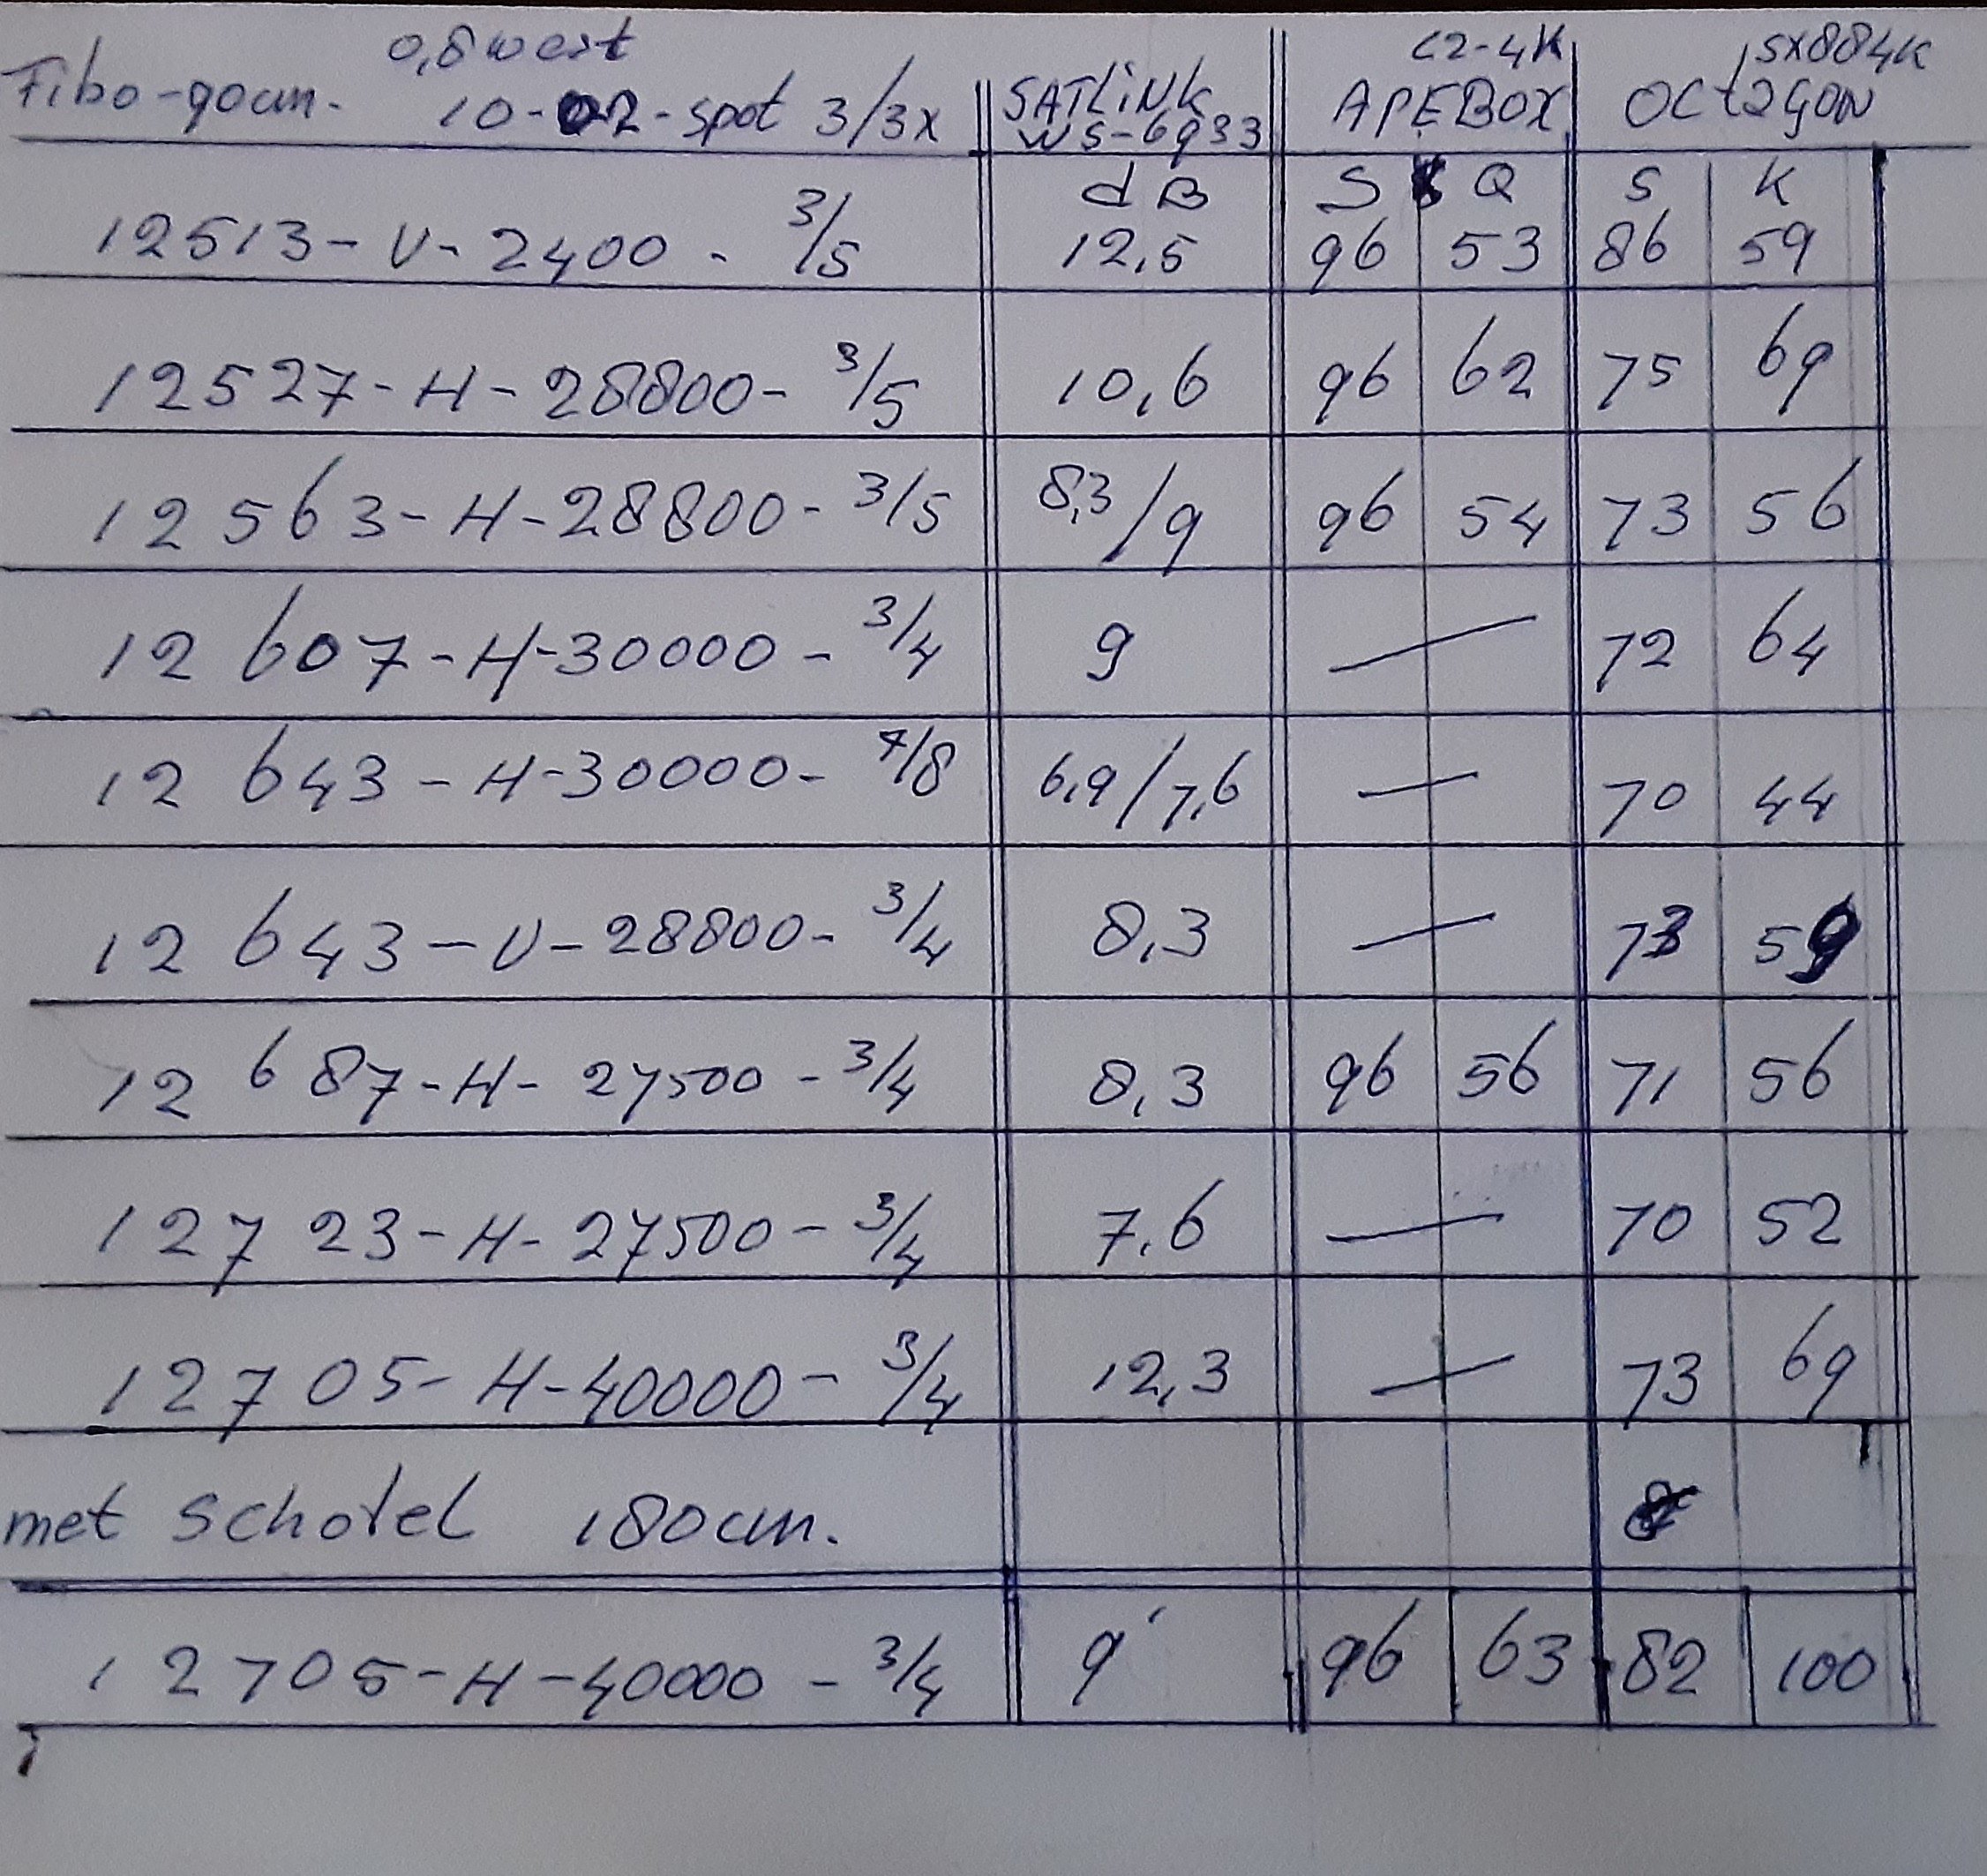 0,8 west C2-4K SX884K
Fibo-90cm. 10-02-spot 3/3x SATLiNK APEBOX OCtaGON
WS-6933
dB S Q S K
12513-V-2400-3/5 12,5 96 53 86 59
12527-H-28800-3/5 10,6 96 62 75 69
12563-H-28800-3/5 8,3/9 96 54 73 56
12607-H-30000-3/4 9 — 72 64
12643-H-30000-7/8 6,9/7,6 — 70 44
12643-V-28800-3/4 8,3 — 73 59
12687-H-27500-3/4 8,3 96 56 71 56
12723-H-27500-3/4 7,6 — 70 52
12705-H-40000-3/4 12,3 — 73 69
met schotel 180cm.
12705-H-40000-3/4 9 96 63 82 100